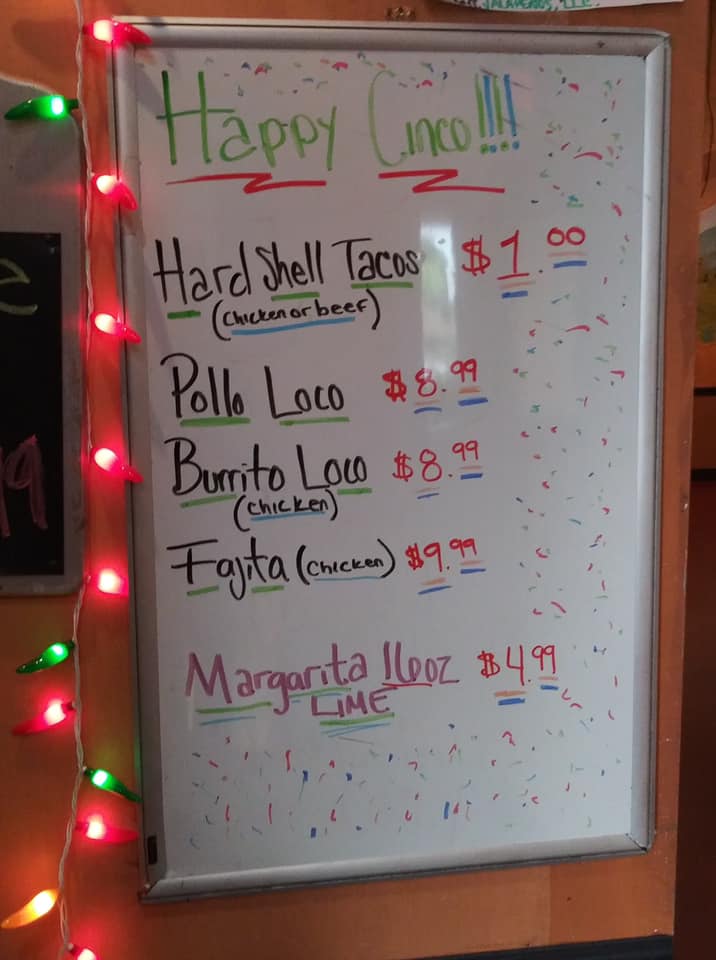 JALAPEÑOS, LLC.
Happy Cinco!!!!
Hard Shell Tacos $1.00
(Chicken or beef)
Pollo Loco $8.99
Burrito Loco $8.99
(chicken)
Fajita (chicken) $9.99
Margarita 16oz $4.99
LIME